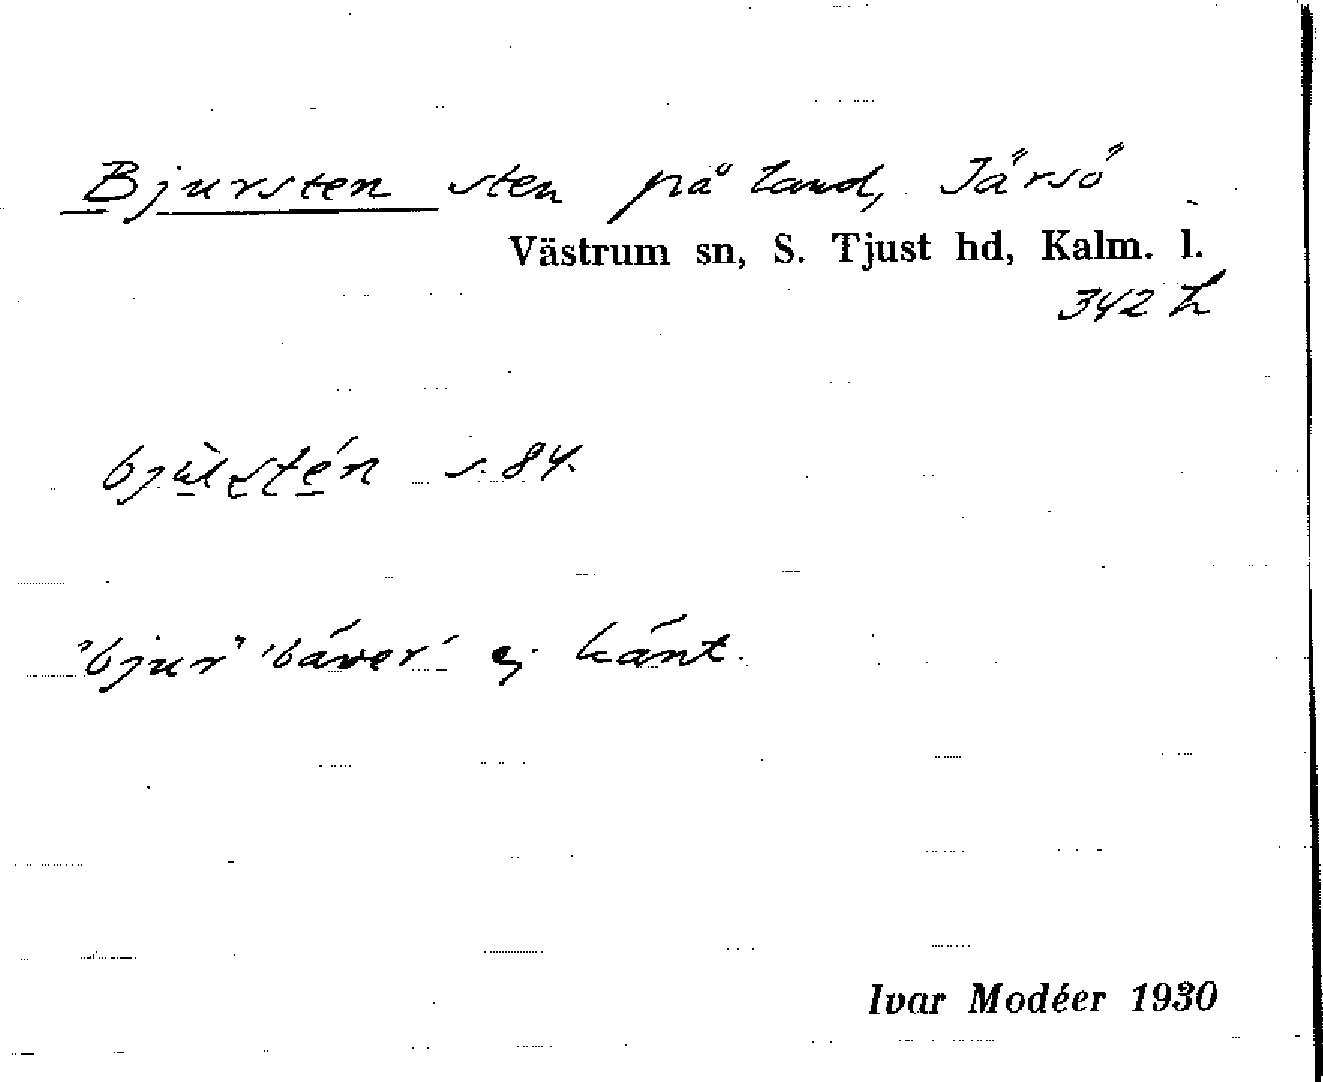 Bjursten sten på land, Järsö
Västrum sn, S. Tjust hd, Kalm. l.
342 h
s. 84.
"bjur" 'bäver' ej känt.
Ivar Modéer 1930